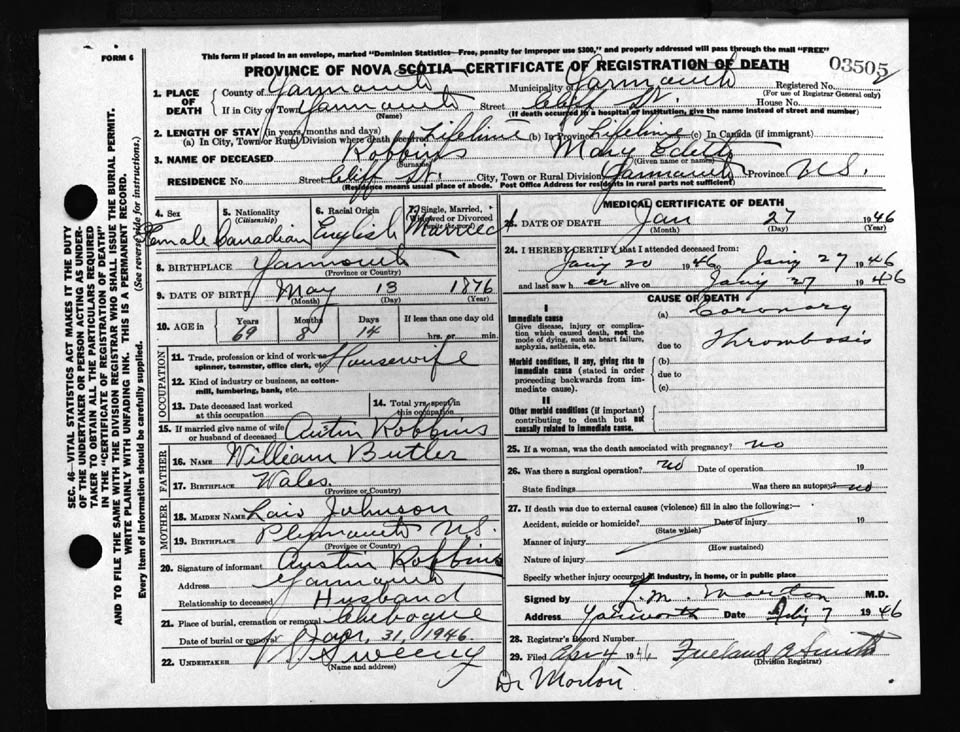 FORM 6
This form if placed in an envelope, marked "Dominion Statistics—Free, penalty for improper use $300," and properly addressed will pass through the mail "FREE"
PROVINCE OF NOVA SCOTIA—CERTIFICATE OF REGISTRATION OF DEATH
03505
2
1. PLACE OF DEATH
County of Yarmouth Municipality of Yarmouth Registered No.
(For use of Registrar General only)
If in City or Town Yarmouth Street Cliff St. House No.
(Name) (If death occurred in a hospital or institution, give the name instead of street and number)
2. LENGTH OF STAY (in years, months and days)
(a) In City, Town or Rural Division where death occurred Lifetime (b) In Province Lifetime (c) In Canada (if immigrant)
3. NAME OF DECEASED Robbins Mary Edetta
Surname (Given name or names)
RESIDENCE No. Street Cliff St. City, Town or Rural Division Yarmouth Province N.S.
(Residence means usual place of abode. Post Office Address for residents in rural parts not sufficient)
4. Sex Female
5. Nationality (Citizenship) Canadian
6. Racial Origin English
7. Single, Married, Widowed or Divorced (write the word) Married
8. BIRTHPLACE Yarmouth
(Province or Country)
9. DATE OF BIRTH May 13 1876
(Month) (Day) (Year)
10. AGE in Years Months Days If less than one day old
69 8 14 hrs. or min.
OCCUPATION
11. Trade, profession or kind of work as spinner, teamster, office clerk, etc. Housewife
12. Kind of industry or business, as cotton-mill, lumbering, bank, etc.
13. Date deceased last worked at this occupation
14. Total yrs. spent in this occupation
15. If married give name of wife or husband of deceased Austin Robbins
FATHER
16. NAME William Butler
17. BIRTHPLACE Wales
(Province or Country)
MOTHER
18. MAIDEN NAME Lois Johnson
19. BIRTHPLACE Plymouth N.S.
(Province or Country)
20. Signature of informant Austin Robbins
Address Yarmouth
Relationship to deceased Husband
21. Place of burial, cremation or removal Chebogue
Date of burial or removal Jan. 31, 1946.
22. UNDERTAKER Sweeny
(Name and address)
MEDICAL CERTIFICATE OF DEATH
DATE OF DEATH Jan 27 1946
(Month) (Day) (Year)
24. I HEREBY CERTIFY that I attended deceased from:
Jany 20 1946 Jany 27 1946
and last saw her alive on Jany 27 1946
CAUSE OF DEATH
I
Immediate cause (a) Coronary
Give disease, injury or complication which caused death, not the mode of dying, such as heart failure, asphyxia, asthenia, etc.
due to Thrombosis
Morbid conditions, if any, giving rise to immediate cause (stated in order proceeding backwards from immediate cause).
(b)
due to
(c)
II
Other morbid conditions (if important) contributing to death but not causally related to immediate cause.
25. If a woman, was the death associated with pregnancy? no
26. Was there a surgical operation? no Date of operation 19
State findings Was there an autopsy? no
27. If death was due to external causes (violence) fill in also the following:—
Accident, suicide or homicide? Date of injury 19
(State which)
Manner of injury
(How sustained)
Nature of injury
Specify whether injury occurred in industry, in home, or in public place
Signed by M.D.
Address Yarmouth Date 7 1946
28. Registrar's Record Number
29. Filed Apr 4 1946 Freeland A Smith
(Division Registrar)
Dr Morton.
SEC. 46—VITAL STATISTICS ACT MAKES IT THE DUTY
OF THE UNDERTAKER OR PERSON ACTING AS UNDER-
TAKER TO OBTAIN ALL THE PARTICULARS REQUIRED
IN THE "CERTIFICATE OF REGISTRATION OF DEATH"
AND TO FILE THE SAME WITH THE DIVISION REGISTRAR WHO SHALL ISSUE THE BURIAL PERMIT.
WRITE PLAINLY WITH UNFADING INK. THIS IS A PERMANENT RECORD.
Every item of information should be carefully supplied. (See reverse side for instructions.)